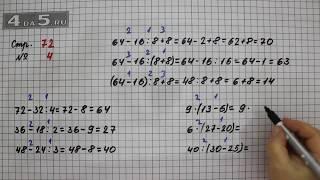 4DA5.RU
Стр. 72
№ 4
2 1 3
64-16:8+8=64-2+8=62+8=70
3 2 1
64-16:(8+8)=64-16:16=64-1=63
1 2 3
(64-16):8+8=48:8+8=6+8=14
2 1
72-32:4=72-8=64
2 1
36-18:2=36-9=27
2 1
48-24:3=48-8=40
2 1
9·(13-6)=9·
2 1
6·(27-20)=
2 1
40:(30-25)=